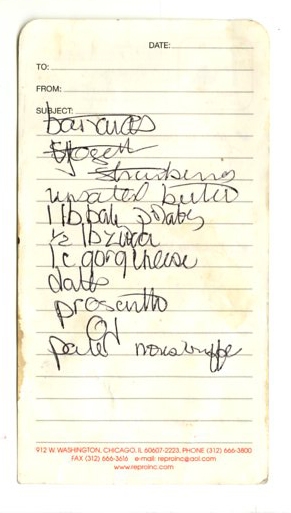 DATE:
TO:
FROM:
SUBJECT:
bananas
strawberries
unsalted butter
1 lb baby potatoes
½ lb
1 c gorg cheese
dates
prosciutto
912 W. WASHINGTON, CHICAGO, IL 60607-2223, PHONE (312) 666-3800
FAX (312) 666-3616 e-mail: reproinc@aol.com
www.reproinc.com